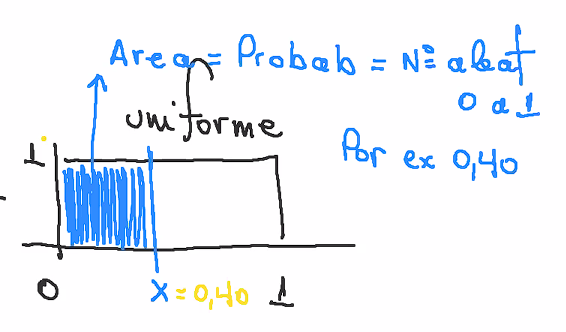 Area = Probab = Nº aleat
0 a 1
uniforme
Por ex 0,40
1
0 x = 0,40 1